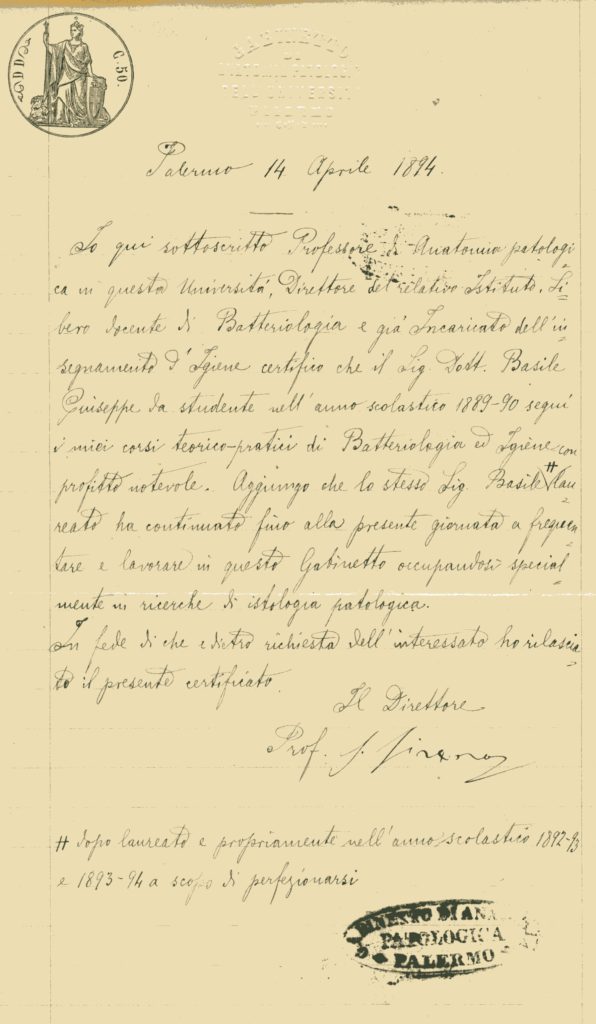 D D
C. 50.
GABINETTO
DI
DELL'UNIVERSITÀ
PALERMO
Palermo 14 Aprile 1894.
Io qui sottoscritto Professore di Anatomia patologi=
ca in questa Università, Direttore del relativo Istituto. Li=
bero docente di Batteriologia e già Incaricato dell'in=
segnamento d'Igiene certifico che il Sig. Dott. Basile
Giuseppe da studente nell'anno scolastico 1889-90 seguì
i miei corsi teorico-pratici di Batteriologia ed Igiene con
profitto notevole. Aggiungo che lo stesso Sig. Basile # lau=
reato ha continuato fino alla presente giornata a frequen=
tare e lavorare in questo Gabinetto occupandosi special=
mente in ricerche di istologia patologica.
In fede di che e dietro richiesta dell'interessato ho rilascia=
to il presente certificato.
Il Direttore
Prof. S.
# dopo laureato e propriamente nell'anno scolastico 1892-93
e 1893-94 a scopo di perfezionarsi
PATOLOGICA
PALERMO